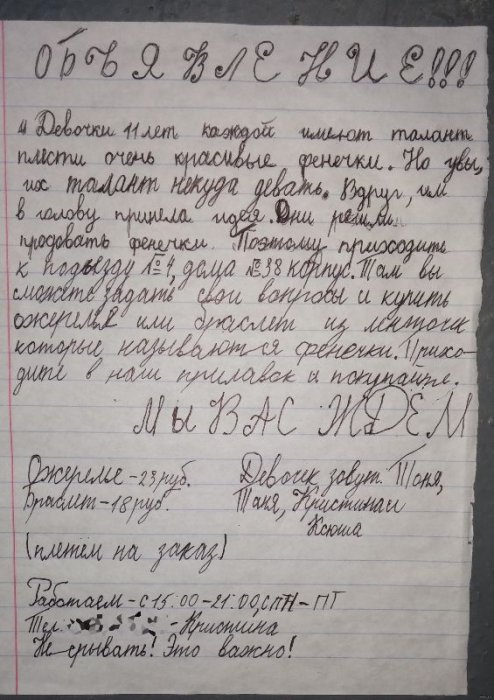 ОБЪЯВЛЕНИЕ!!!
"Девочки 11 лет каждой имеют талант
плести очень красивые фенечки. Но увы,
их талант некуда девать. Вдруг, им
в голову пришла идея. Они решили
продовать фенечки. Поэтому приходите
к подъезду №4, дома №38 корпус. Там вы
сможете задать свои вопросы и купить
ожерелья или браслет из ниточек
которые называются фенечки. Прихо-
дите в наш прилавок и покупайте.
МЫ ВАС ЖДЁМ
Ожерелье - 23 руб.
Браслет - 18 руб.
(плетём на заказ)
Девочек зовут: Тоня,
Таня, Кристина и
Ксюша
Работаем - с 15:00-21:00, с ПН - ПТ
Тел. - Кристина
Не срывать! Это важно!